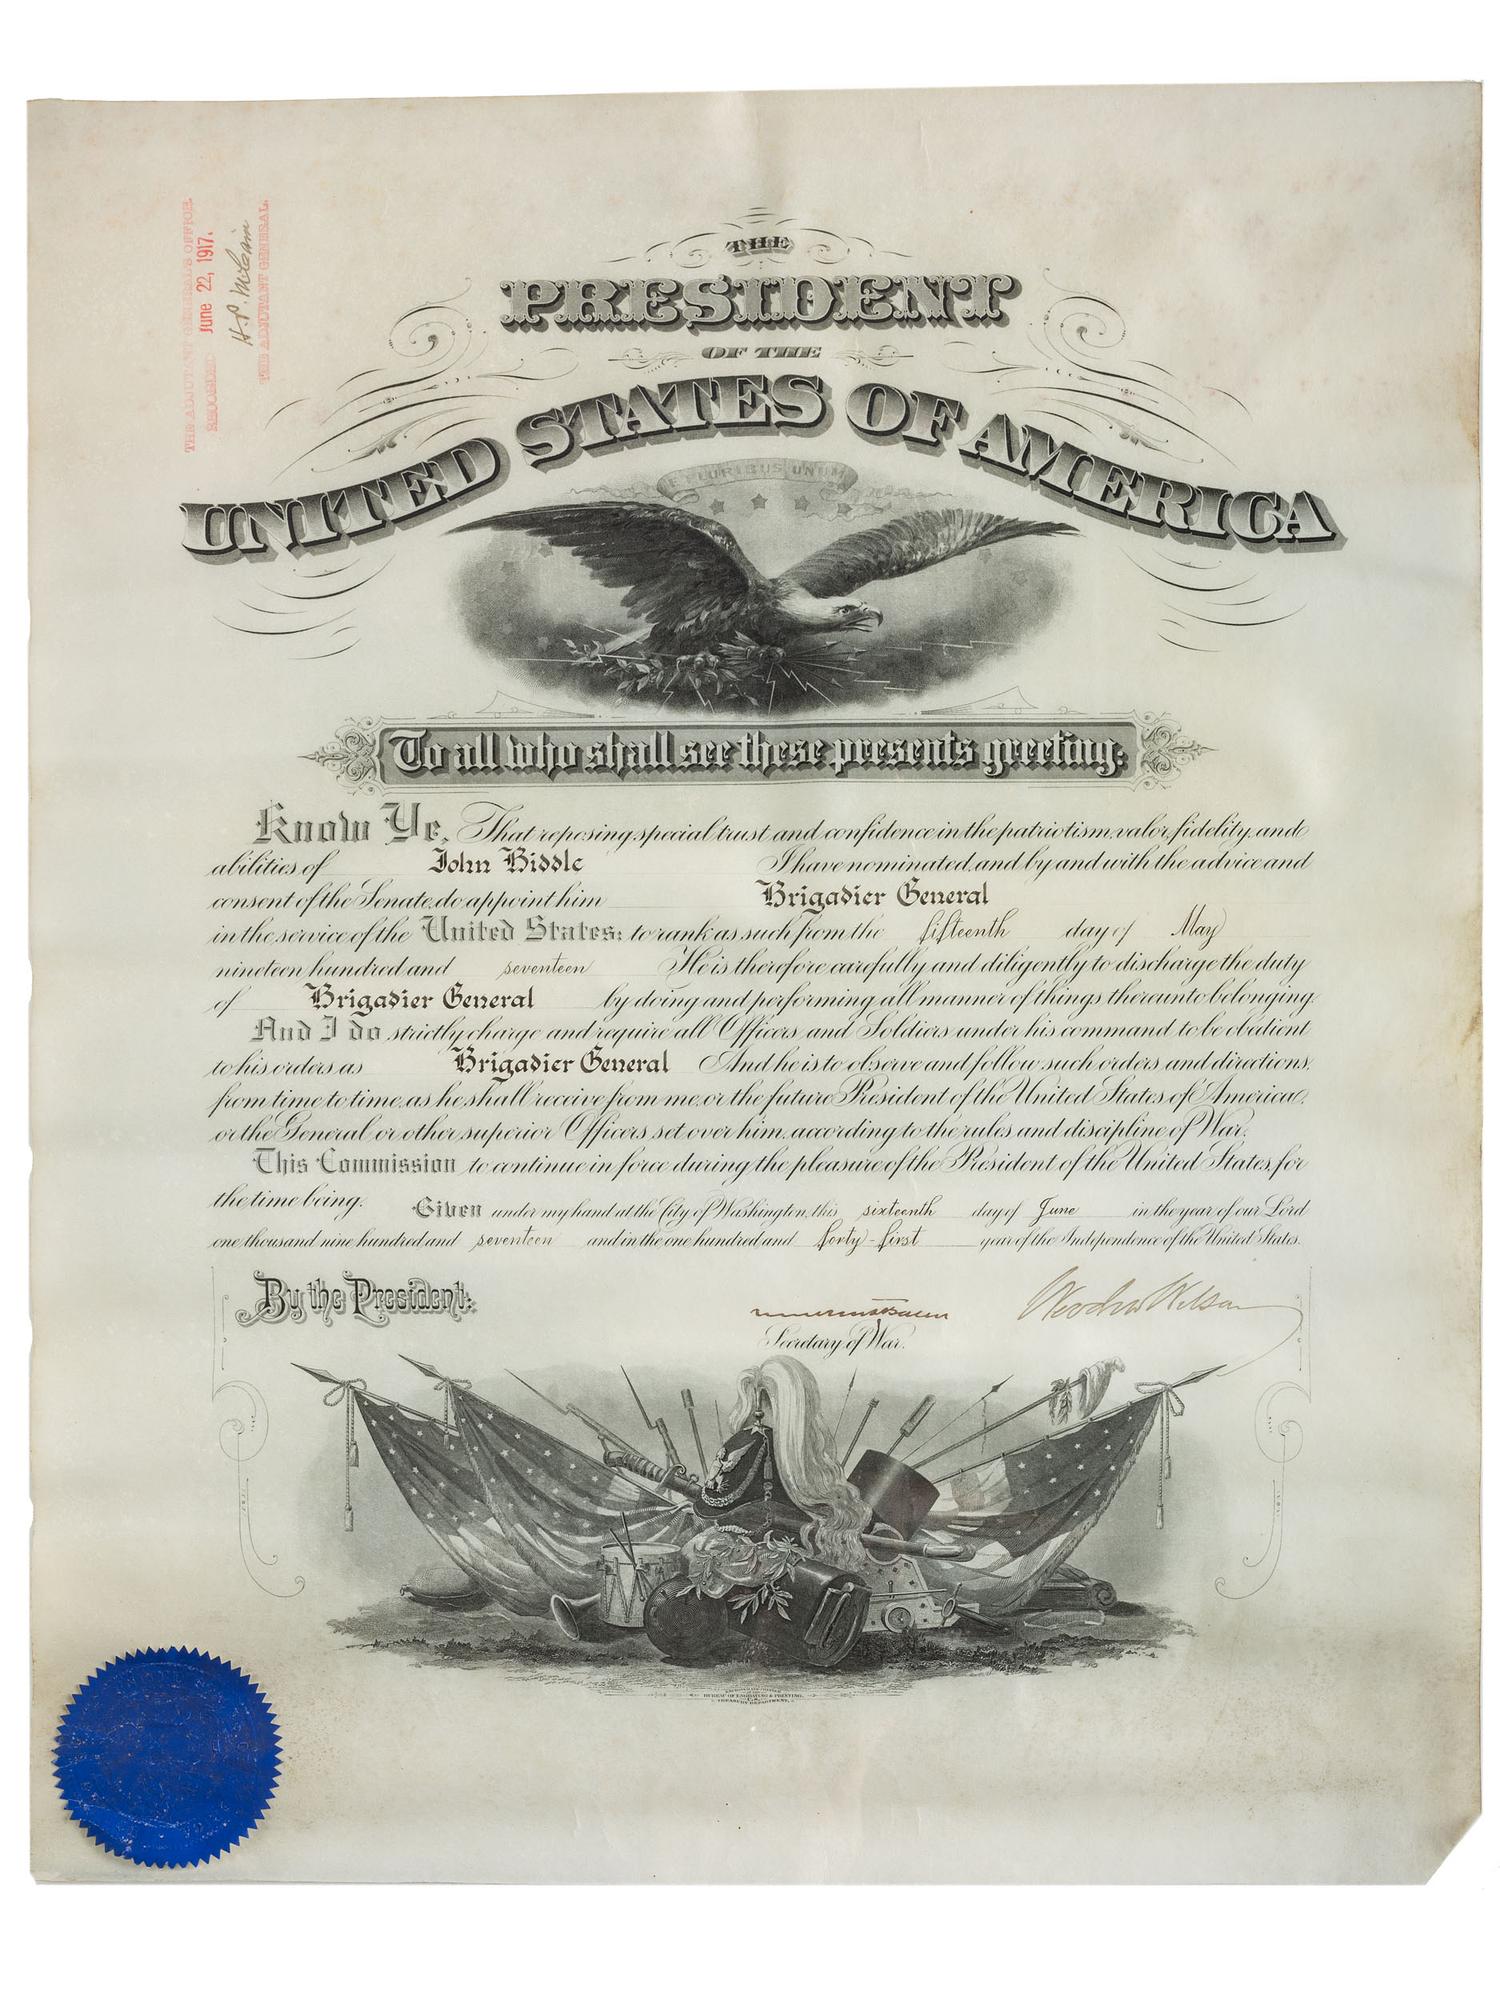 THE ADJUTANT GENERAL'S OFFICE.
RECORDED June 22, 1917.
H. P. McCain
THE ADJUTANT GENERAL.
THE
PRESIDENT
OF THE
UNITED STATES OF AMERICA
E PLURIBUS UNUM
To all who shall see these presents greeting:
Know Ye, That reposing special trust and confidence in the patriotism, valor, fidelity, and
abilities of John Biddle I have nominated, and by and with the advice and
consent of the Senate, do appoint him Brigadier General
in the service of the United States: to rank as such from the fifteenth day of May
nineteen hundred and seventeen He is therefore carefully and diligently to discharge the duty
of Brigadier General by doing and performing all manner of things thereunto belonging.
And I do strictly charge and require all Officers and Soldiers under his command to be obedient
to his orders as Brigadier General And he is to observe and follow such orders and directions,
from time to time, as he shall receive from me, or the future President of the United States of America,
or the General or other superior Officers set over him, according to the rules and discipline of War.
This Commission to continue in force during the pleasure of the President of the United States, for
the time being. Given under my hand at the City of Washington, this sixteenth day of June in the year of our Lord
one thousand nine hundred and seventeen and in the one hundred and forty-first year of the Independence of the United States.
By the President:
Woodrow Wilson
Secretary of War.
BUREAU OF ENGRAVING & PRINTING,
TREASURY DEPARTMENT,